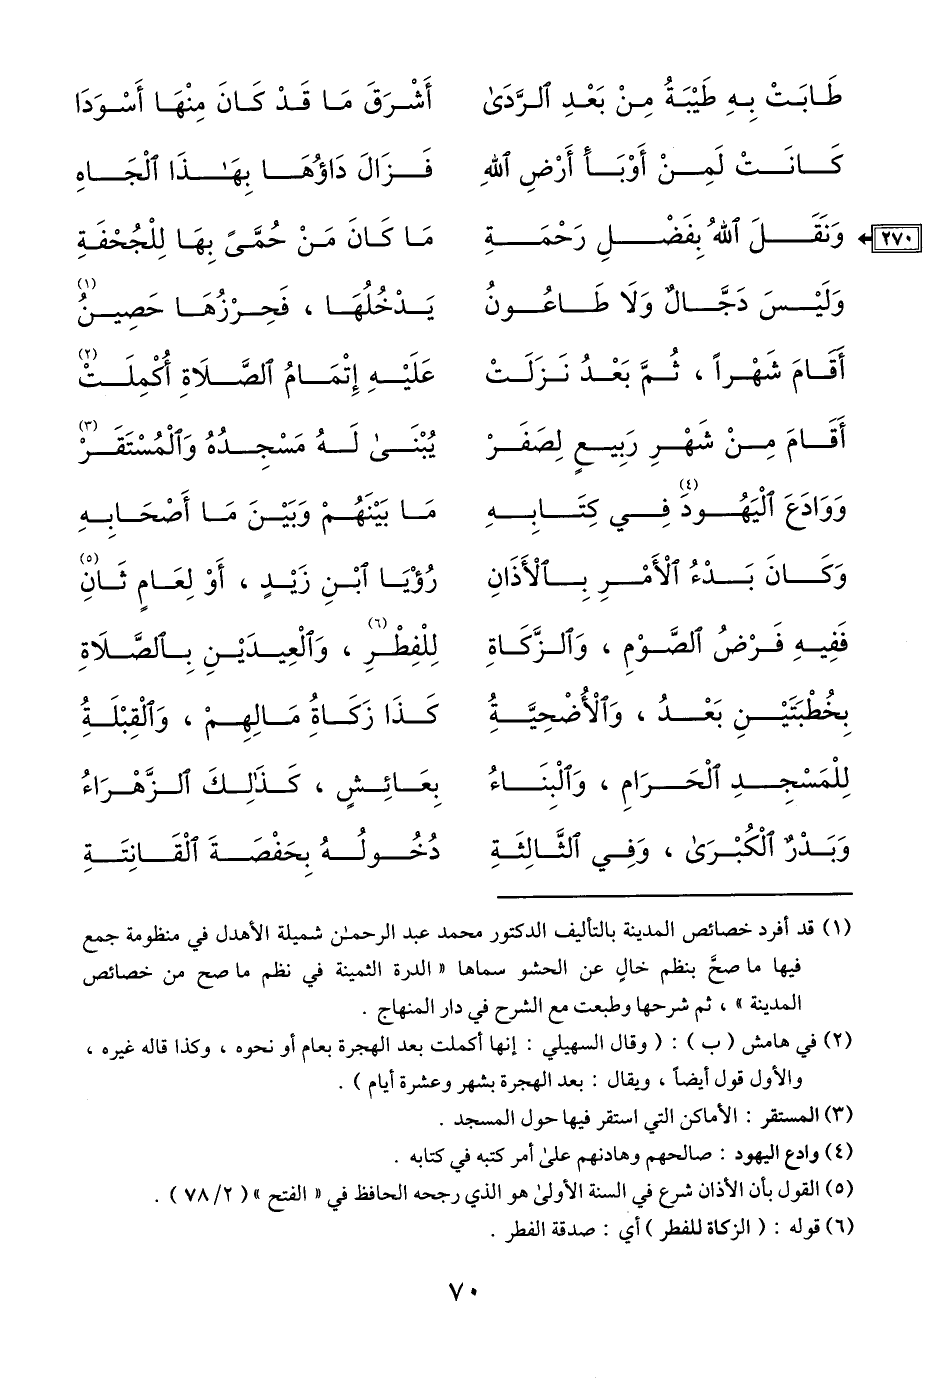 طَابَتْ بِهِ طَيْبَةُ مِنْ بَعْدِ ٱلرَّدَىٰ أَشْرَقَ مَا قَدْ كَانَ مِنْهَا أَسْوَدَا
كَانَتْ لَمِنْ أَوْبَأْ أَرْضِ ٱللهِ فَزَالَ دَاؤُهَا بِهَٰذَا ٱلْجَاهِ
٢٧٠ وَنَقَلَ ٱللهُ بِفَضْلِ رَحْمَةِ مَا كَانَ مَنْ حُمَّىً بِهَا لِلْجُحْفَةِ
وَلَيْسَ دَجَّالٌ وَلَا طَاعُونُ يَدْخُلُهَا ، فَحِرْزُهَا حَصِينُ (١)
أَقَامَ شَهْراً ، ثُمَّ بَعْدُ نَزَلَتْ عَلَيْهِ إِتْمَامُ ٱلصَّلَاةِ أُكْمِلَتْ (٢)
أَقَامَ مِنْ شَهْرِ رَبِيعٍ لِصَفَرْ يُبْنَىٰ لَهُ مَسْجِدُهُ وَٱلْمُسْتَقَرْ (٣)
وَوَادَعَ ٱلْيَهُودَ (٤) فِي كِتَابِهِ مَا بَيْنَهُمْ وَبَيْنَ مَا أَصْحَابِهِ
وَكَانَ بَدْءُ ٱلْأَمْرِ بِٱلْأَذَانِ رُؤْيَا ٱبْنِ زَيْدٍ ، أَوْ لِعَامٍ ثَانِ (٥)
فَفِيهِ فَرْضُ ٱلصَّوْمِ ، وَٱلزَّكَاةِ لِلْفِطْرِ (٦) ، وَٱلْعِيدَيْنِ بِٱلصَّلَاةِ
بِخُطْبَتَيْنِ بَعْدُ ، وَٱلْأُضْحِيَّةُ كَذَا زَكَاةُ مَالِهِمْ ، وَٱلْقِبْلَةُ
لِلْمَسْجِدِ ٱلْحَرَامِ ، وَٱلْبِنَاءُ بِعَائِشٍ ، كَذَٰلِكَ ٱلزَّهْرَاءُ
وَبَدْرٌ ٱلْكُبْرَىٰ ، وَفِي ٱلثَّالِثَةِ دُخُولُهُ بِحَفْصَةَ ٱلْقَانِتَةِ
(١) قد أفرد خصائص المدينة بالتأليف الدكتور محمد عبد الرحمٰن شميلة الأهدل في منظومة جمع
فيها ما صحَّ بنظم خالٍ عن الحشو سماها « الدرة الثمينة في نظم ما صح من خصائص
المدينة » ، ثم شرحها وطبعت مع الشرح في دار المنهاج .
(٢) في هامش ( ب ) : ( وقال السهيلي : إنها أكملت بعد الهجرة بعام أو نحوه ، وكذا قاله غيره ،
والأول قول أيضاً ، ويقال : بعد الهجرة بشهر وعشرة أيام ) .
(٣) المستقر : الأماكن التي استقر فيها حول المسجد .
(٤) وادع اليهود : صالحهم وهادنهم علىٰ أمر كتبه في كتابه .
(٥) القول بأن الأذان شرع في السنة الأولىٰ هو الذي رجحه الحافظ في « الفتح » ( ٧٨/٢ ) .
(٦) قوله : ( الزكاة للفطر ) أي : صدقة الفطر .
٧٠